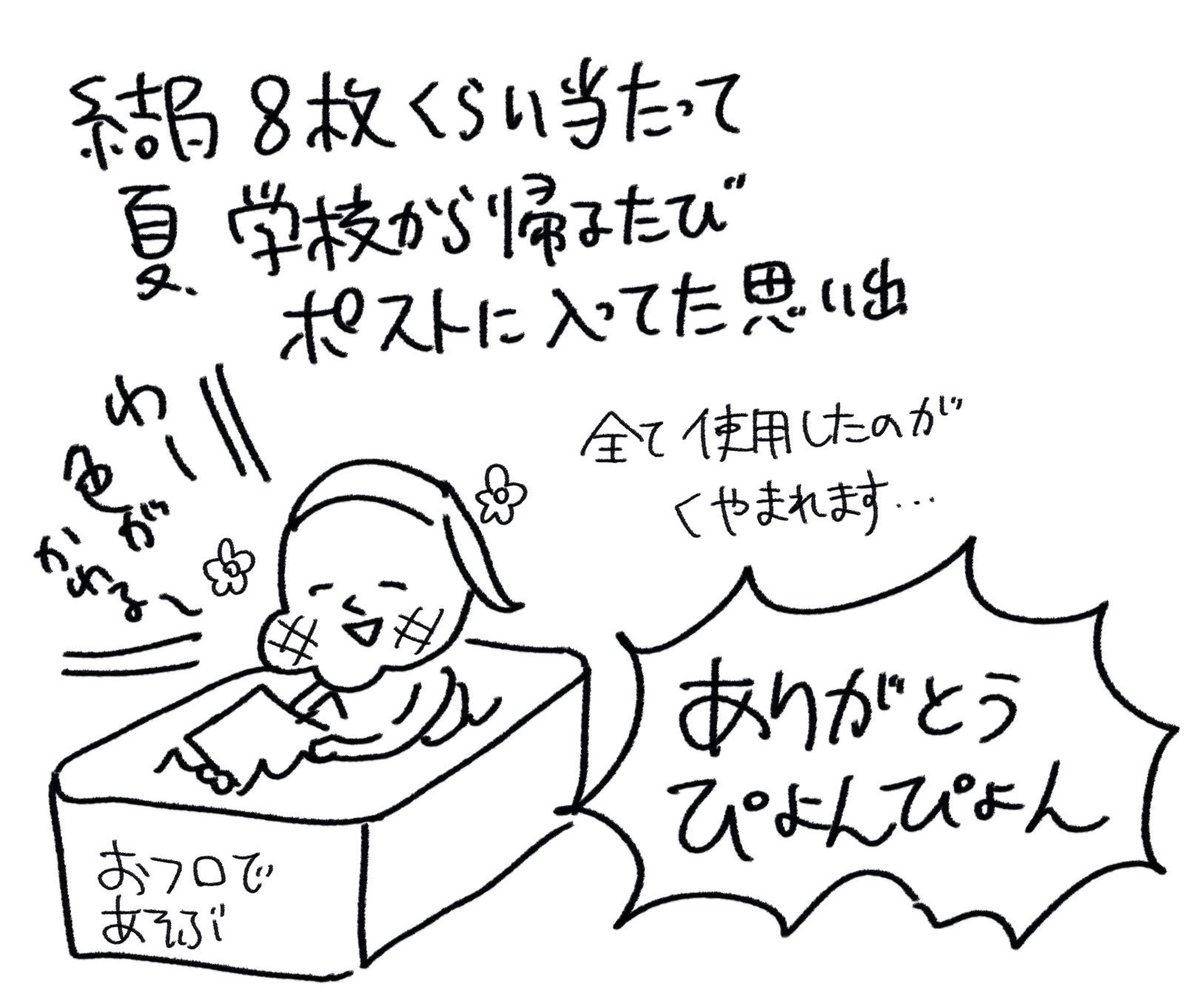 結局 8枚くらい当たって
夏 学校から帰るたび
ポストに入ってた思い出
わー
色が
かわるー
全て使用したのが
くやまれます…
ありがとう
ぴょんぴょん
おフロで
あそぶ